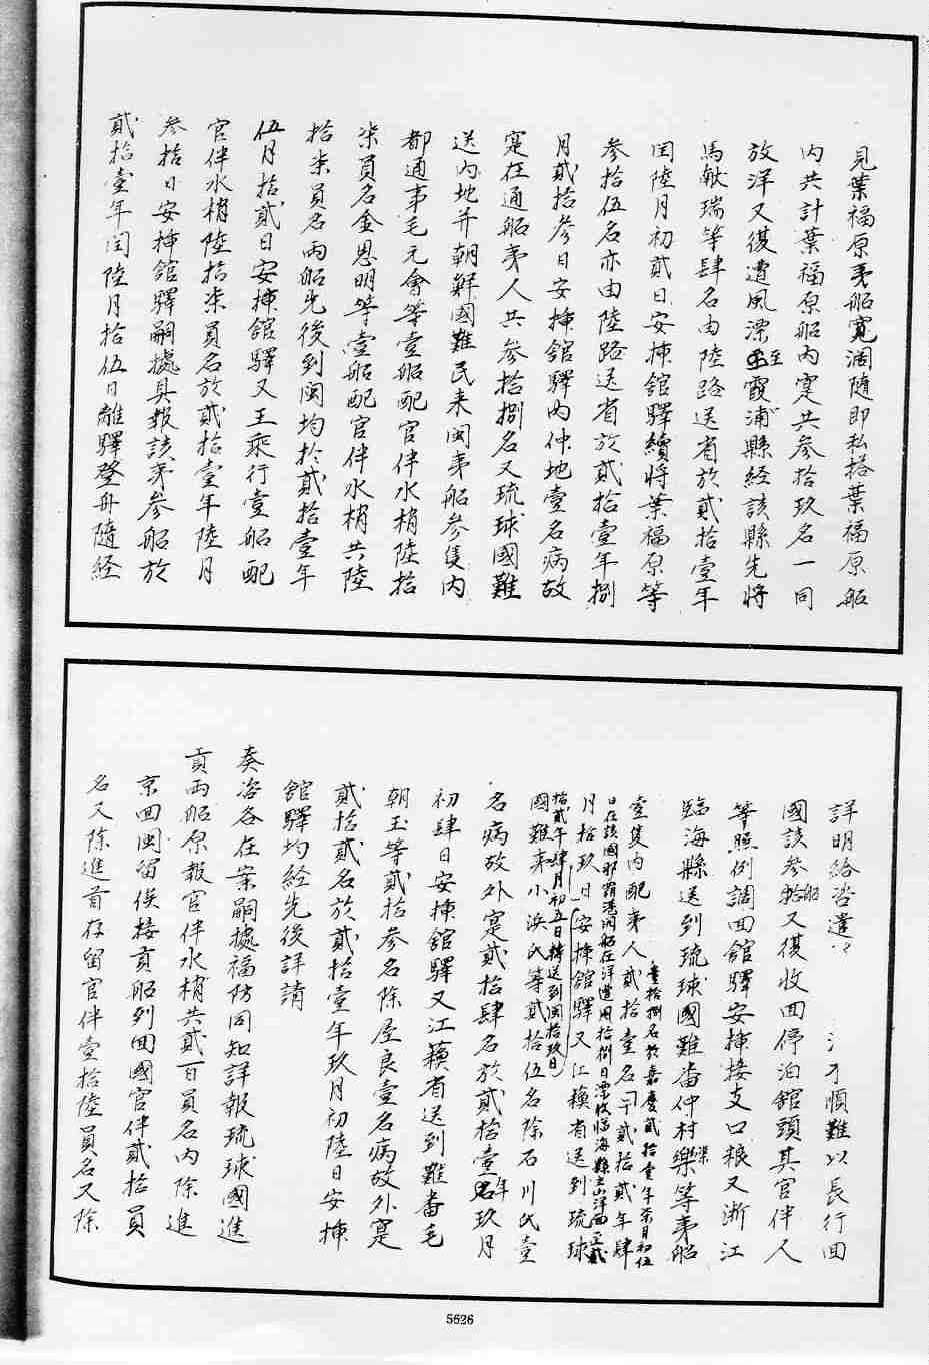 見葉福原夷船寬濶隨即私搭葉福原船
內共計葉福原船內寔共參拾玖名一同
放洋又復遭風漂至霞浦縣經該縣先將
馬猷瑞等肆名由陸路送省於貳拾壹年
閏陸月初貳日安揷館驛續將葉福原等
參拾伍名亦由陸路送省於貳拾壹年捌
月貳拾參日安揷館驛內仲地壹名病故
寔在通船夷人共參拾捌名又琉球國難
送內地并朝鮮國難民来閩夷船參隻內
都通事毛元會等壹船配官伴水梢陸拾
柒員名金恩明等壹船配官伴水梢共陸
拾柒員名兩船先後到閩均於貳拾壹年
伍月拾貳日安揷館驛又王秉行壹船配
官伴水梢陸拾柒員名於貳拾壹年陸月
參拾日安揷館驛嗣據具報該夷參船於
貳拾壹年閏陸月拾伍日離驛登舟隨經
詳明給咨遣 順難以長行回
國該參船又復收回停泊館頭其官伴人
等照例調回館驛安揷接支口粮又浙江
臨海縣送到琉球國難番仲村渠樂等夷船
壹隻內配夷人貳拾壹名 貳拾貳年肆
壹拾捌名於嘉慶貳拾壹年柒月初伍
日在該國那霸港開船在洋遭風拾捌日漂收臨海縣 洋面
月拾玖日安揷館驛又江蘓省送到琉球
拾貳年肆月初五日轉送到閩拾玖日
國難夷小浜氏等貳拾伍名除石川氏壹
名病故外寔貳拾肆名於貳拾壹年玖月
初肆日安揷館驛又江蘓省送到難番毛
朝玉等貳拾參名除屋良壹名病故外寔
貳拾貳名於貳拾壹年玖月初陸日安揷
館驛均經先後詳請
奏咨各在案嗣據福防同知詳報琉球國進
貢兩船原報官伴水梢共貳百員名內除進
京回閩留俟接貢船到回國官伴貳拾員
名又除進首存留官伴壹拾陸員名又除
5526